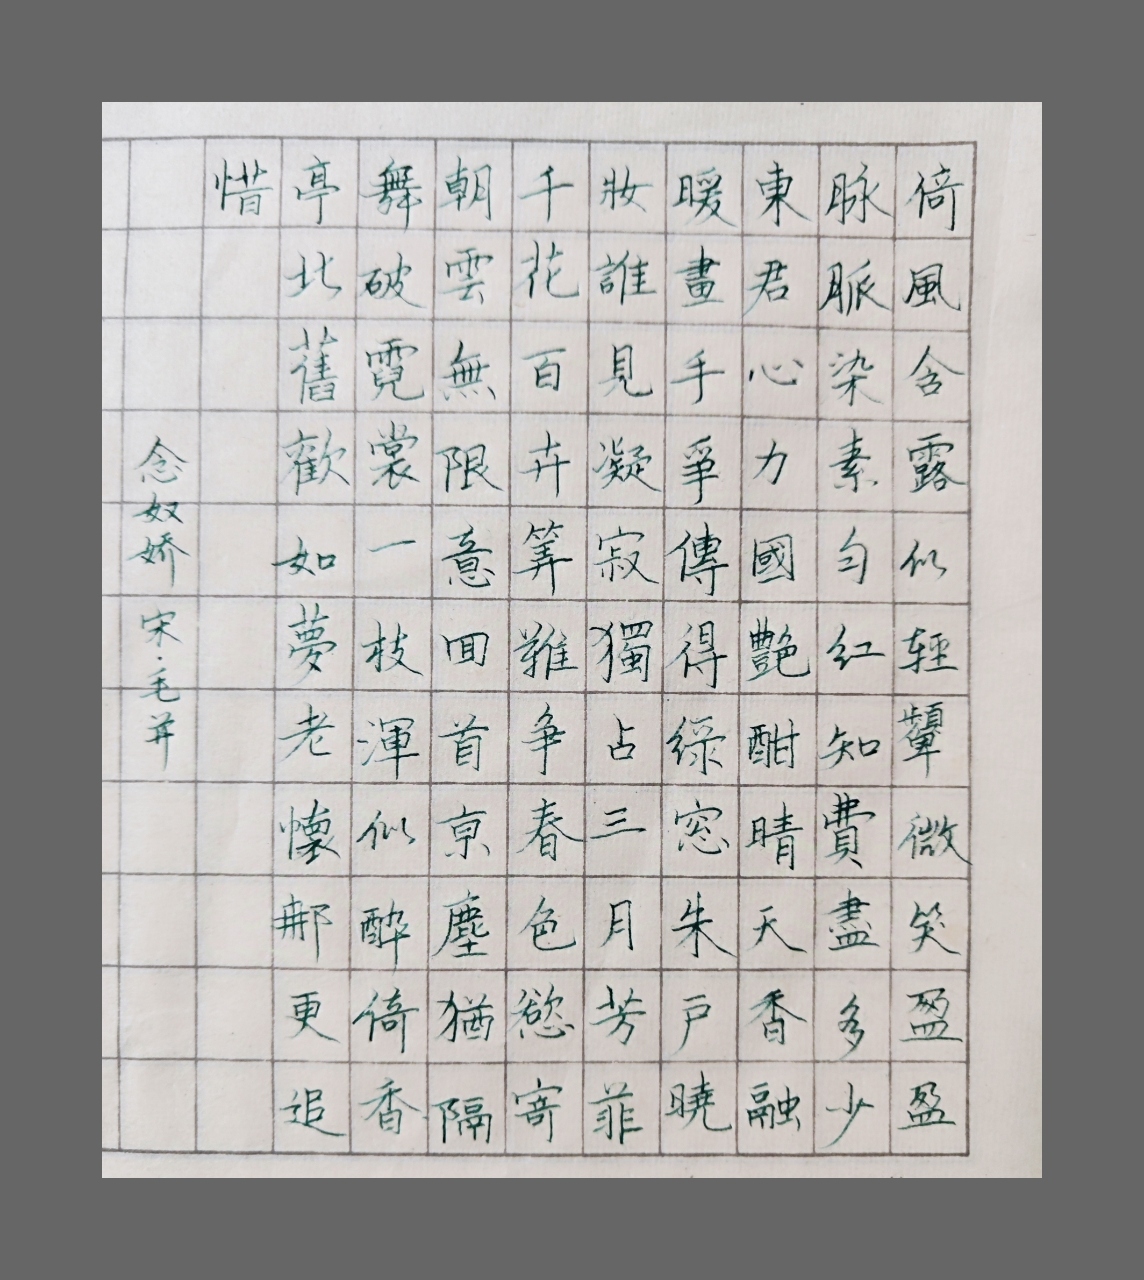 倚風含露似輕顰微笑盈盈
脉脈染素勻紅知費盡多少
東君心力國艷酣晴天香融
暖畫手爭傳得綠窓朱戸曉
妝誰見凝寂獨占三月芳菲
千花百卉筭難争春色慾寄
朝雲無限意回首京塵猶隔
舞破霓裳一枝渾似醉倚香
亭北舊歡如夢老懷那更追
惜
念奴娇 宋·毛幵